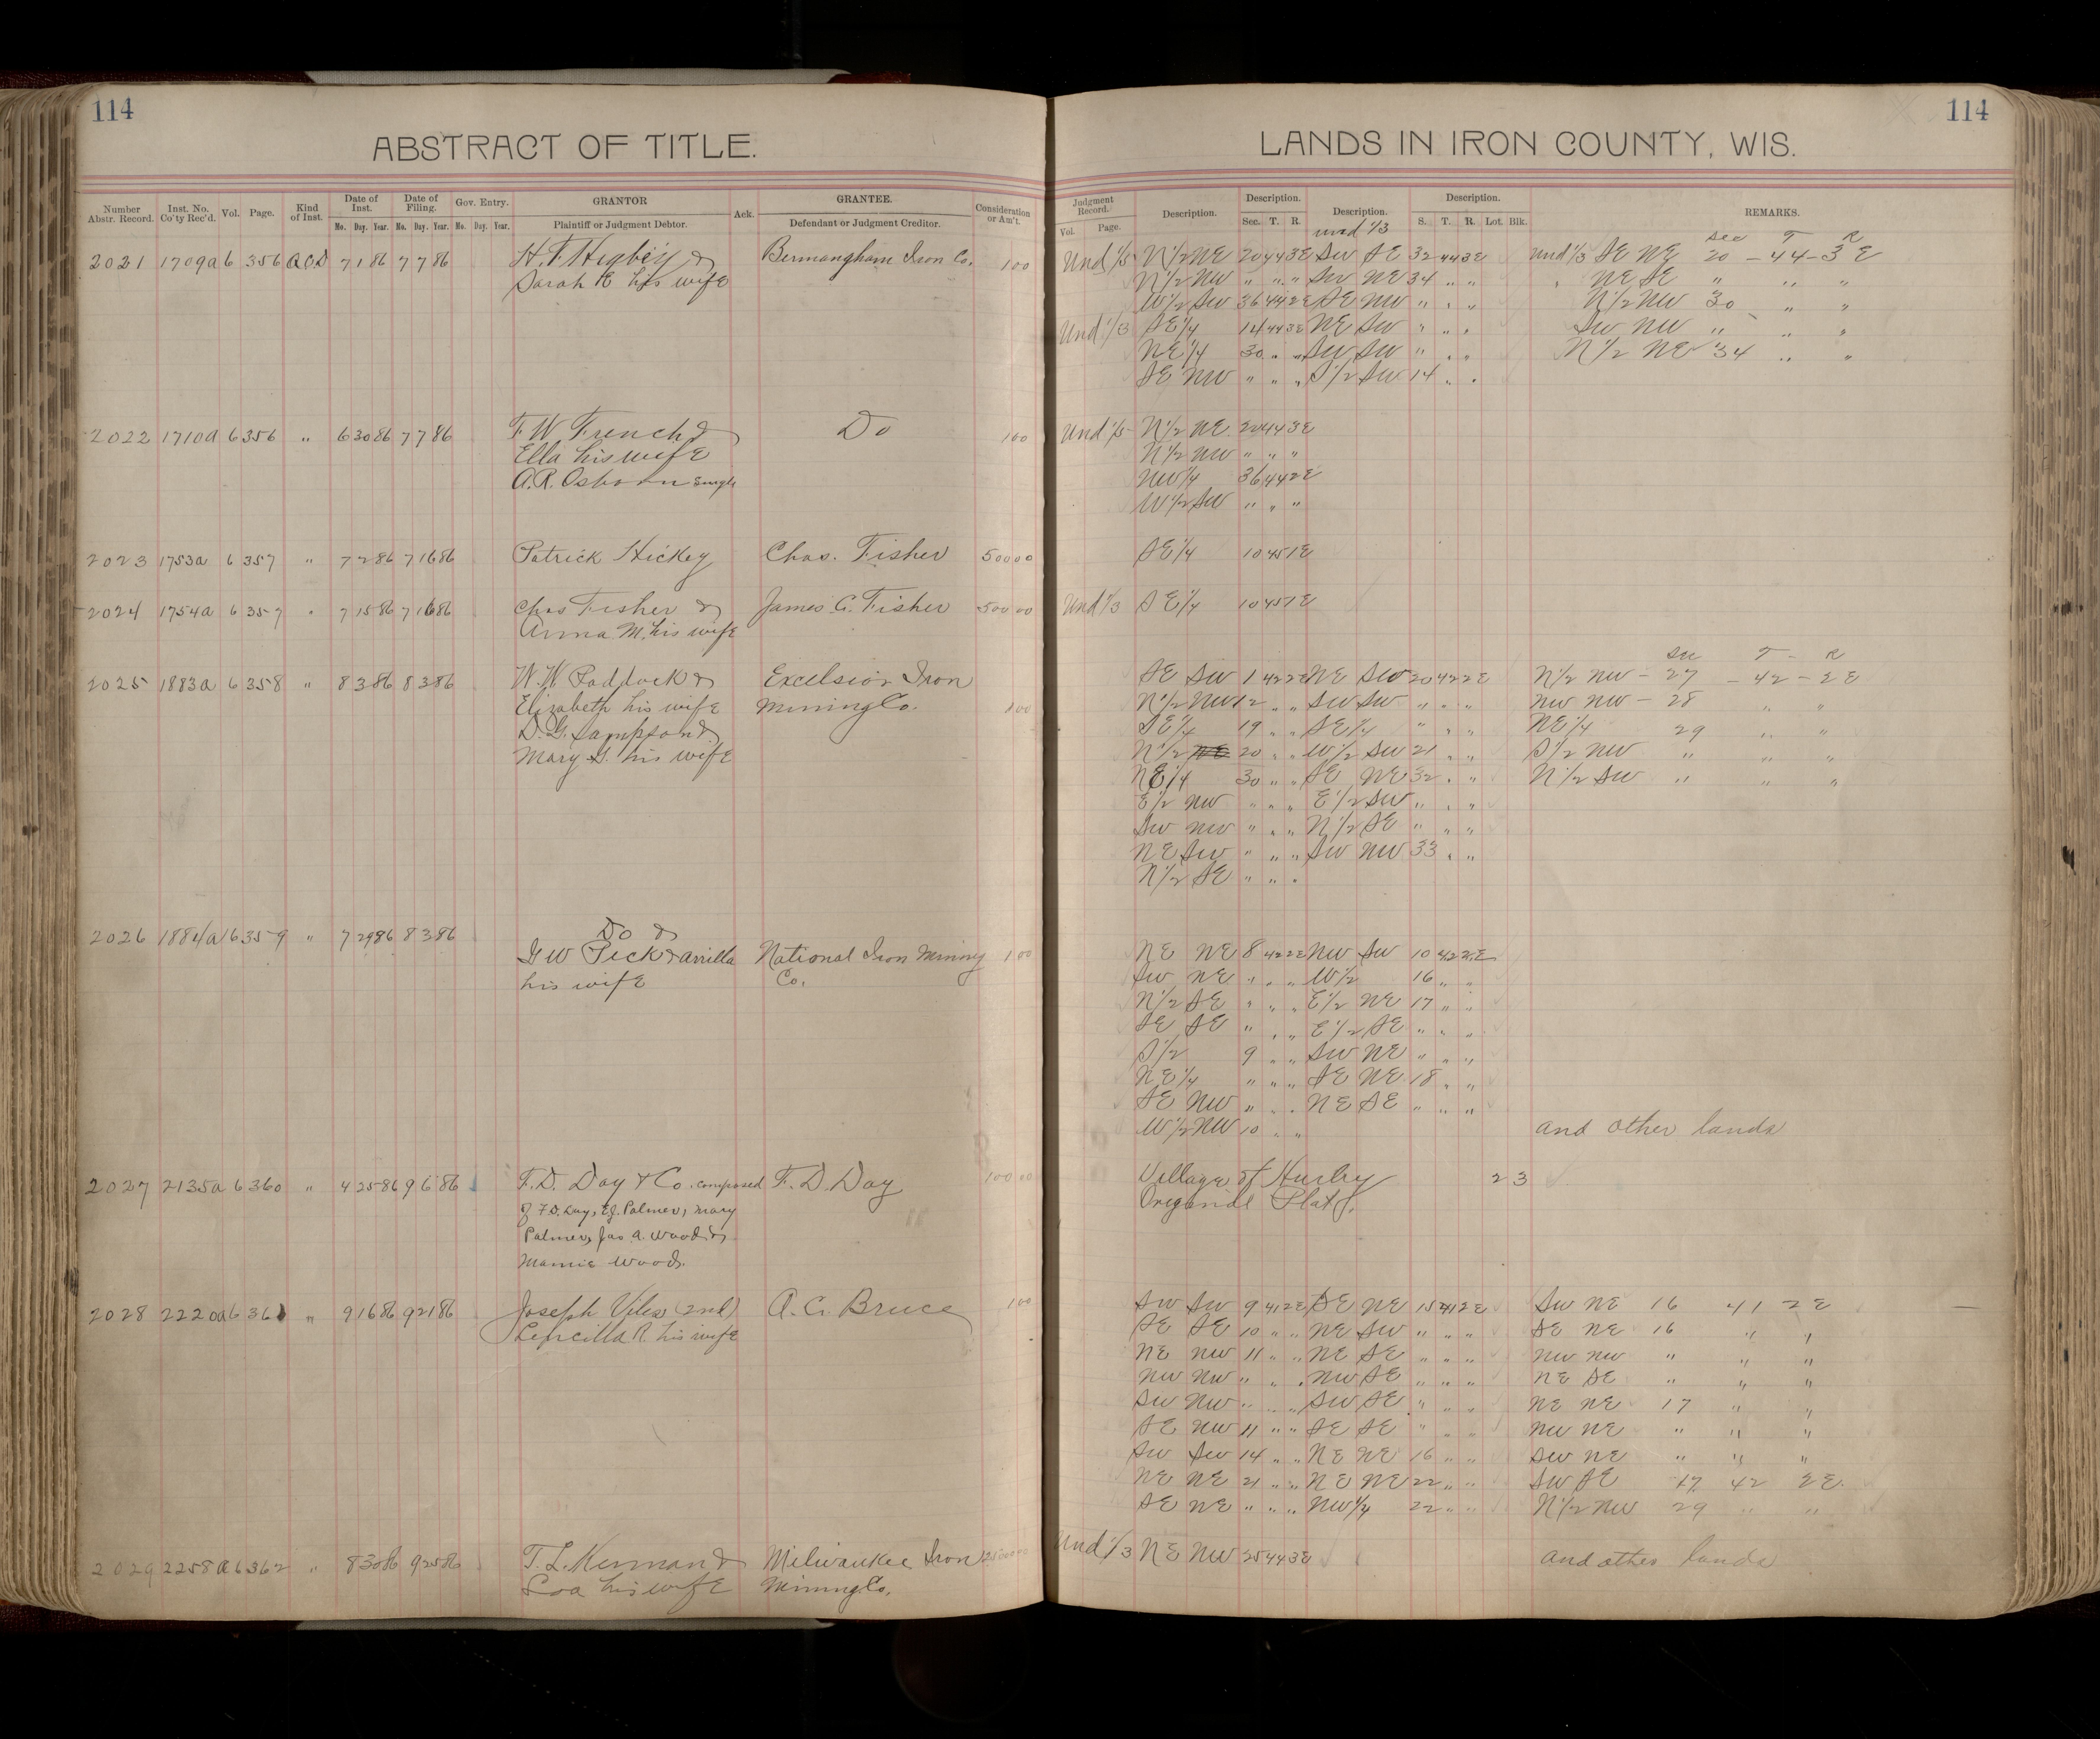 114
ABSTRACT OF TITLE.
Number Abstr. Record. Inst. No. Co'ty Rec'd. Vol. Page. Kind of Inst. Date of Inst. Mo. Day. Year. Date of Filing. Mo. Day. Year. Gov. Entry. Mo. Day. Year. GRANTOR Plaintiff or Judgment Debtor. Ack. GRANTEE. Defendant or Judgment Creditor. Consideration or Am't.
2021 1709a 6 356 QCD 7 1 86 7 7 86 H. F. Higbey & Bermangham Iron Co. 1 00
Sarah E his wife
2022 1710a 6 356 " 6 30 86 7 7 86 F W French & Do 1 00
Ella his wife
A. R. Osborn Single
2023 1753a 6 357 " 7 2 86 7 16 86 Patrick Hickey Chas. Fisher 500 00
2024 1754a 6 357 " 7 15 86 7 16 86 Chas Fisher & James G. Fisher 500 00
Anna M. his wife
2025 1883a 6 358 " 8 3 86 8 3 86 W. W Paddock & Excelsior Iron
Elizabeth his wife Mining Co. 1 00
D. G. Sampson &
Mary G. his wife
2026 1884a 6 359 " 7 29 86 8 3 86 Do &
G W Peck & Arrilla National Iron Mining 1 00
his wife Co.
2027 2135a 6 360 " 4 25 86 9 6 86 F. D. Day & Co. composed F. D. Day 100 00
of F. D. Day, E. J. Palmer, Mary
Palmer, Jas A. Wood &
Mamie Wood.
2028 2220a 6 361 " 9 16 86 9 21 86 Joseph Vilas (2nd) A. C. Bruce 1 00
his wife
2029 2258a 6 362 " 8 30 86 9 25 86 T. L. Kerman & Milwaukee Iron
Loa his wife Mining Co.
114
LANDS IN IRON COUNTY, WIS.
Judgment Record. Vol. Page. Description. Description. Sec. T. R. Description. Description. S. T. R. Lot. Blk. REMARKS.
und 1/3 Sec T R
Und 1/5 N 1/2 NE 20 44 3E SW SE 32 44 3E Und 1/3 SE NE 20 - 44 - 3 E
N 1/2 NW " " " SW NE 34 " " NE SE " " "
W 1/2 SW 36 44 2E SE NW " " " N 1/2 NW 30 " "
Und 1/3 SE 1/4 14 44 3E NE SW " " " SW NW " " "
NE 1/4 30 " " SW SW " " " N 1/2 NE 34 " "
SE NW " " " S 1/2 SW 14 " "
Und 1/5 N 1/2 NE 20 44 3E
N 1/2 NW " " "
NW 1/4 36 44 2E
W 1/2 SW " " "
SE 1/4 10 45 1E
Und 1/3 SE 1/4 10 45 1E
Sec T - R
SE SW 1 42 2E NE SW 20 42 2E N 1/2 NW - 27 - 42 - 2 E
N 1/2 NW 12 " " SW SW " " " NW NW - 28 " "
SE 1/4 19 " " SE 1/4 " " " NE 1/4 29 " "
N 1/2 20 " " W 1/2 SW 21 " " S 1/2 NW " " "
NE 1/4 30 " " SE NE 32 " " N 1/2 SW " " "
E 1/2 NW " " " E 1/2 SW " " "
SW NW " " " N 1/2 SE " " "
NE SW " " " SW NW 33 " "
N 1/2 SE " " "
NE NE 8 42 2E NW SW 10 42 2E
SW NE " " " W 1/2 16 " "
N 1/2 SE " " " E 1/2 NE 17 " "
SE SE " " " E 1/2 SE " " "
S 1/2 9 " " SW NE " " "
NE 1/4 " " " SE NE 18 " "
SE NW " " " NE SE " " "
W 1/2 NW 10 " " and other lands
Village of Hurley 2 3
Origanal Plat
SW SW 9 41 2E SE NE 15 41 2E SW NE 16 41 2 E
SE SE 10 " " NE SW " " " SE NE 16 " "
NE NW 11 " " NE SE " " " NW NW " " "
NW NW " " " NW SE " " " NE SE " " "
SW NW " " " SW SE " " " NE NE 17 " "
SE NW 11 " " SE SE " " " NW NE " " "
SW SW 14 " " NE NE 16 " " SW NE " " "
NE NE 21 " " NE NE 22 " " SW SE 17 42 2E.
SE NE " " " NW 1/4 22 " " N 1/2 NW 29 " "
Und 1/3 NE NW 25 44 3E and other lands